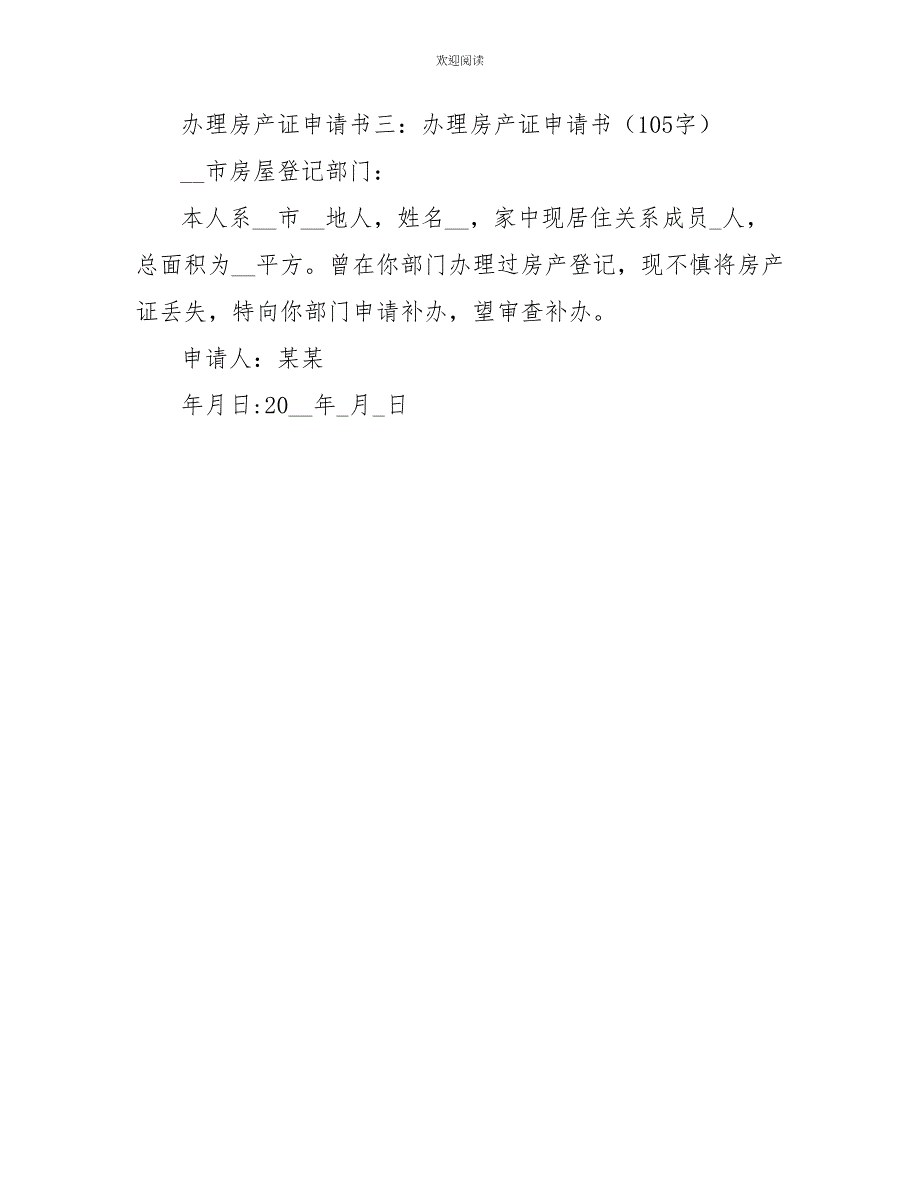 欢迎阅读
办理房产证申请书三：办理房产证申请书（105字）
__市房屋登记部门：
本人系__市__地人，姓名__，家中现居住关系成员_人，
总面积为__平方。曾在你部门办理过房产登记，现不慎将房产
证丢失，特向你部门申请补办，望审查补办。
申请人：某某
年月日:20__年_月_日